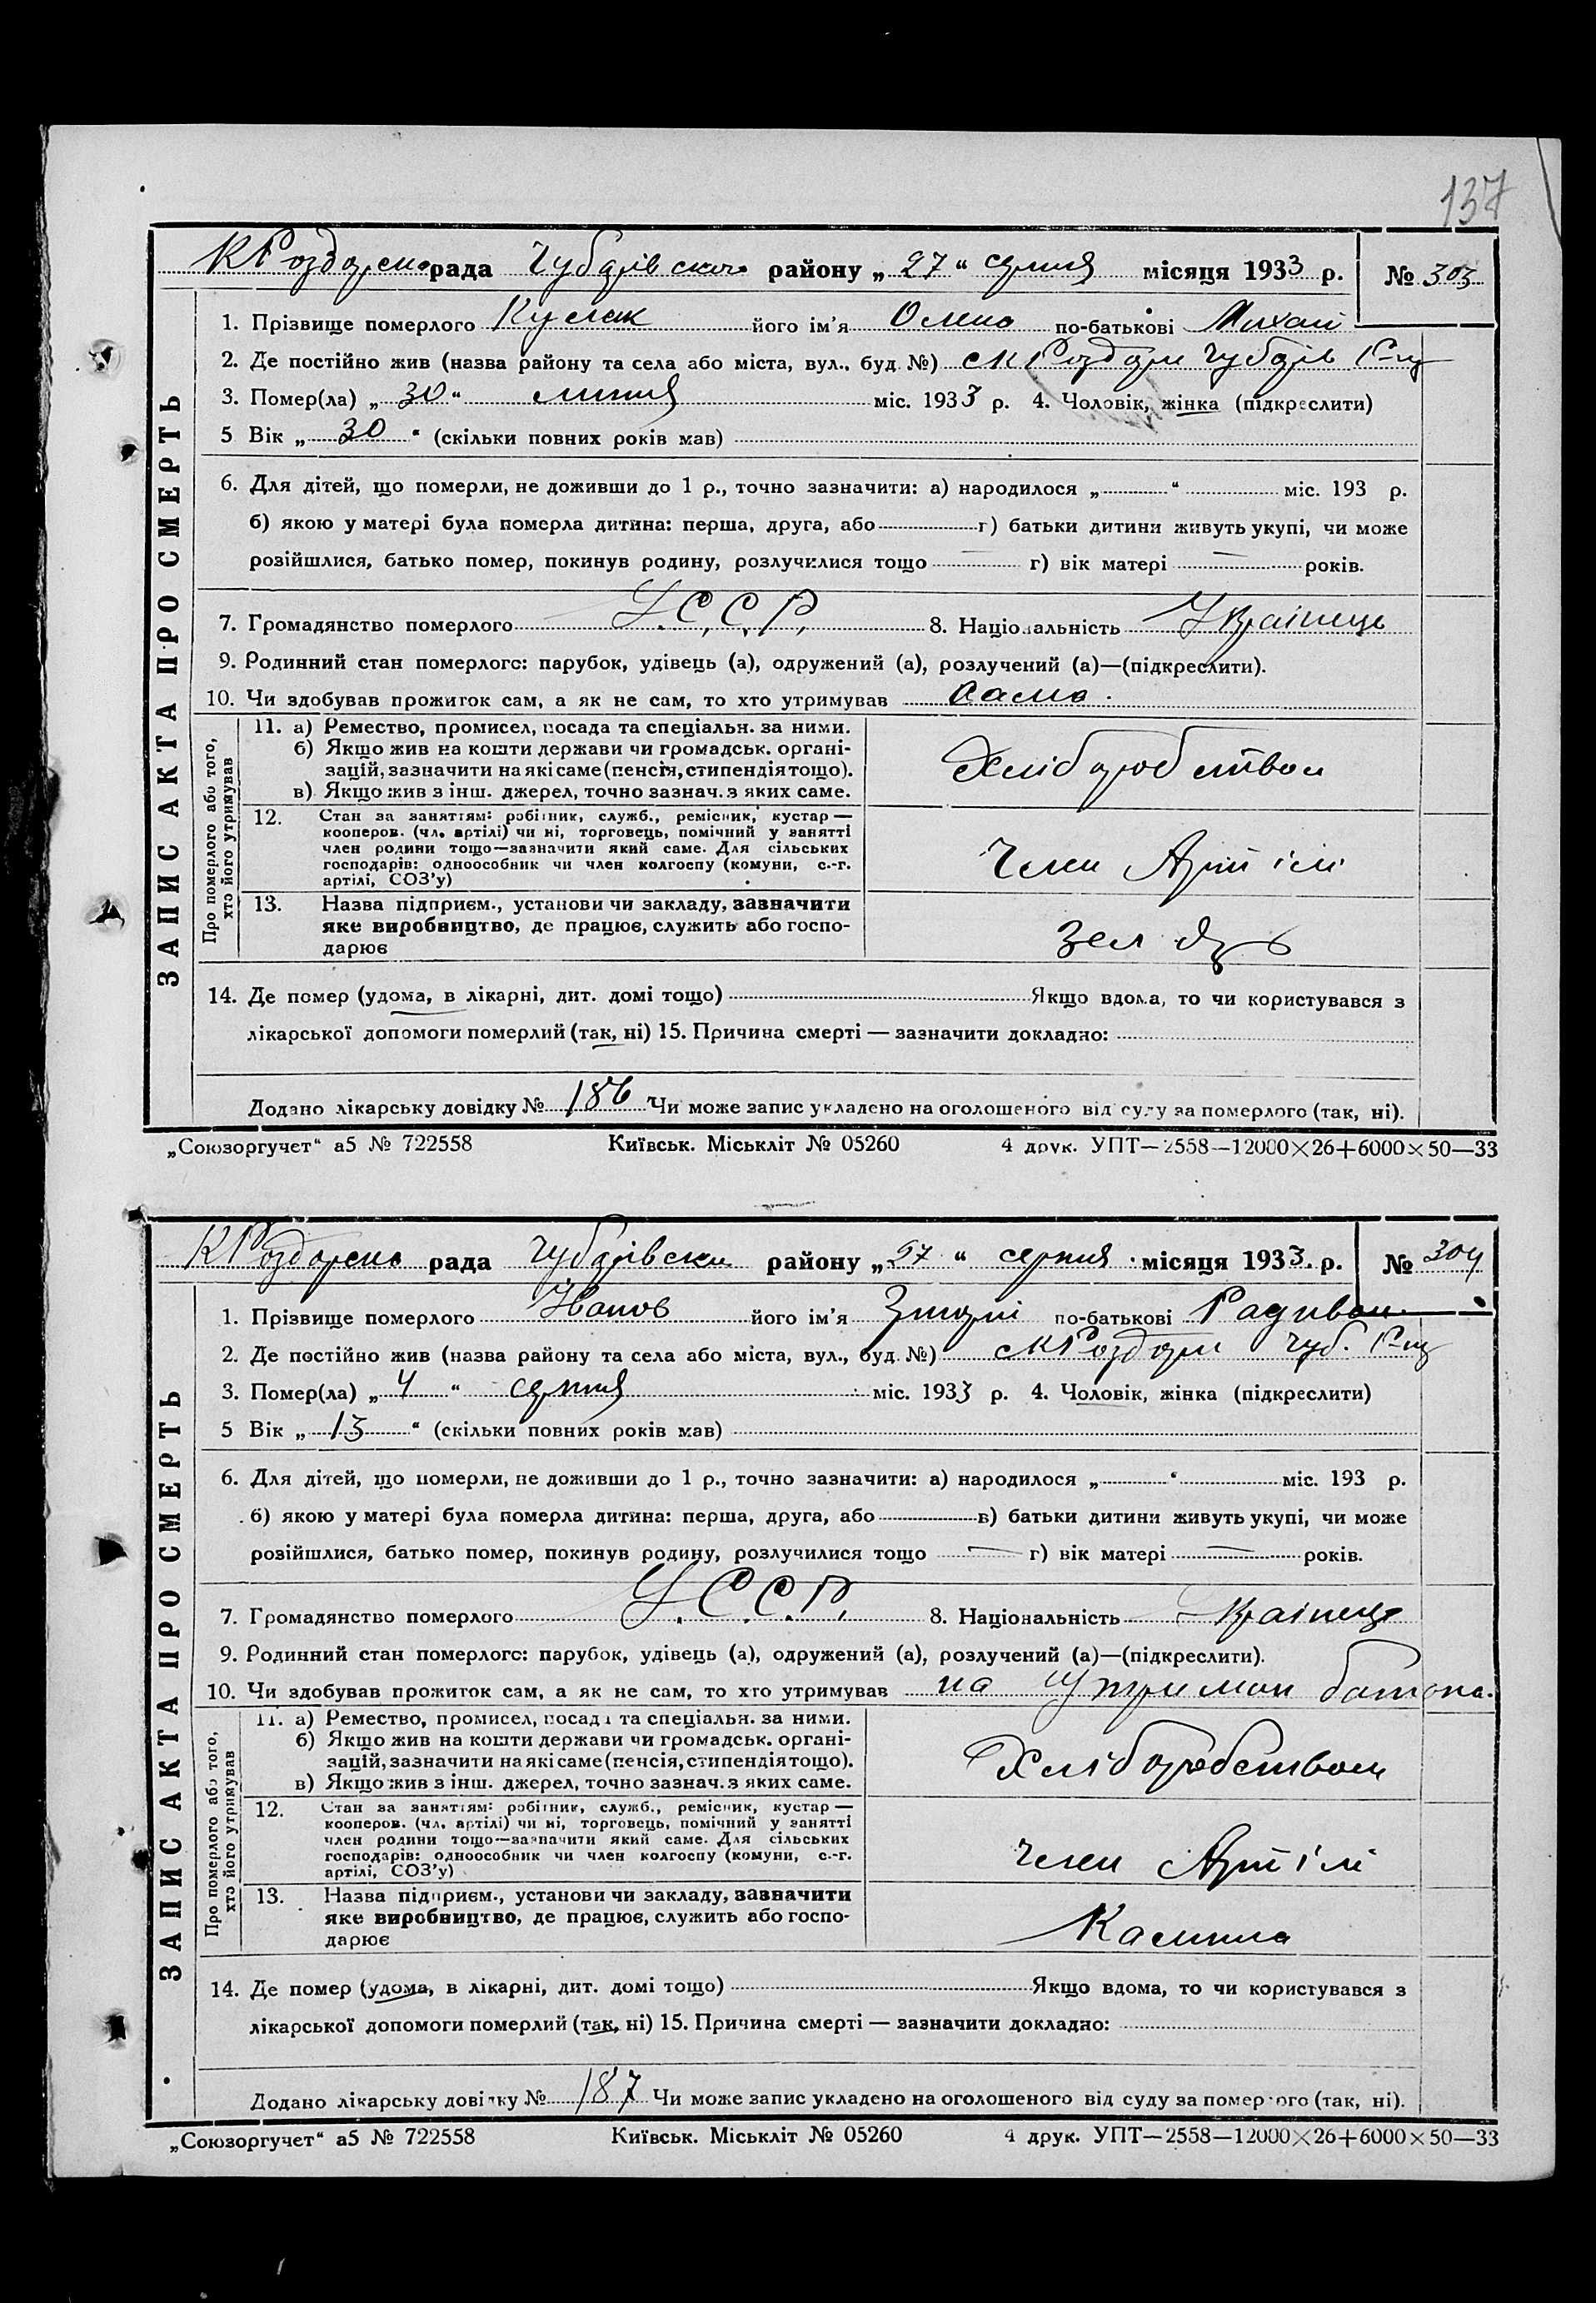 137
КРоздорська рада Чубарівського району „27“ серпня місяця 1933 р. № 303
1. Прізвище померлого Кулик його ім'я Олена по-батькові Михай
2. Де постійно жив (назва району та села або міста, вул., буд. №) с КРоздори Чубарів Р-ну
3. Помер(ла) „30“ липня міс. 1933 р. 4. Чоловік, жінка (підкреслити)
5 Вік „30“ (скільки повних років мав)
6. Для дітей, що померли, не доживши до 1 р., точно зазначити: а) народилося „ “ міс. 193 р.
б) якою у матері була померла дитина: перша, друга, або г) батьки дитини живуть укупі, чи може
розійшлися, батько помер, покинув родину, розлучилися тощо г) вік матері років.
7. Громадянство померлого У.С.С.Р. 8. Національність Українець
9. Родинний стан померлого: парубок, удівець (а), одружений (а), розлучений (а)—(підкреслити).
10. Чи здобував прожиток сам, а як не сам, то хто утримував сама
ЗАПИС АКТА ПРО СМЕРТЬ
Про померлого або того, хто його утримував
11. а) Ремество, промисел, посада та спеціальн. за ними.
б) Якщо жив на кошти держави чи громадськ. органі-
зацій, зазначити на які саме (пенсія, стипендія тощо).
в) Якщо жив з інш. джерел, точно зазнач. з яких саме.
Хліборобством
12. Стан за заняттям: робітник, служб., ремісник, кустар —
кооперов. (чл. артілі) чи ні, торговець, помічний у занятті
член родини тощо—зазначити який саме. Для сільських
господарів: одноособник чи член колгоспу (комуни, с.-г.
артілі, СОЗ'у)
Член Артілі
13. Назва підприєм., установи чи закладу, зазначити
яке виробництво, де працює, служить або госпо-
дарює
Зел
14. Де помер (удома, в лікарні, дит. домі тощо) Якщо вдома, то чи користувався з
лікарської допомоги померлий (так, ні) 15. Причина смерті — зазначити докладно:
Додано лікарську довідку № 186 Чи може запис укладено на оголошеного від суду за померлого (так, ні).
„Союзоргучет“ а5 № 722558 Київськ. Міськліт № 05260 4 друк. УПТ—2558—12000×26+6000×50—33
КРоздорська рада Чубарівськ району „27“ серпня місяця 1933. р. № 304
1. Прізвище померлого Іванов його ім'я по-батькові Радивон.
2. Де постійно жив (назва району та села або міста, вул., буд. №) с КРоздори Чуб. Р-ну
3. Помер(ла) „4“ серпня міс. 1933 р. 4. Чоловік, жінка (підкреслити)
5 Вік „13“ (скільки повних років мав)
6. Для дітей, що померли, не доживши до 1 р., точно зазначити: а) народилося „ “ міс. 193 р.
б) якою у матері була померла дитина: перша, друга, або в) батьки дитини живуть укупі, чи може
розійшлися, батько помер, покинув родину, розлучилися тощо г) вік матері років.
7. Громадянство померлого У.С.С.Р. 8. Національність Українець
9. Родинний стан померлого: парубок, удівець (а), одружений (а), розлучений (а)—(підкреслити).
10. Чи здобував прожиток сам, а як не сам, то хто утримував на утриман батька.
ЗАПИС АКТА ПРО СМЕРТЬ
Про померлого або того, хто його утримував
11. а) Ремество, промисел, посада та спеціальн. за ними.
б) Якщо жив на кошти держави чи громадськ. органі-
зацій, зазначити на які саме (пенсія, стипендія тощо).
в) Якщо жив з інш. джерел, точно зазнач. з яких саме.
Хліборобством
12. Стан за заняттям: робітник, служб., ремісник, кустар —
кооперов. (чл. артілі) чи ні, торговець, помічний у занятті
член родини тощо—зазначити який саме. Для сільських
господарів: одноособник чи член колгоспу (комуни, с.-г.
артілі, СОЗ'у)
член Артілі
13. Назва підприєм., установи чи закладу, зазначити
яке виробництво, де працює, служить або госпо-
дарює
14. Де помер (удома, в лікарні, дит. домі тощо) Якщо вдома, то чи користувався з
лікарської допомоги померлий (так, ні) 15. Причина смерті — зазначити докладно:
Додано лікарську довідку № 187 Чи може запис укладено на оголошеного від суду за померлого (так, ні).
„Союзоргучет“ а5 № 722558 Київськ. Міськліт № 05260 4 друк. УПТ—2558—12000×26+6000×50—33